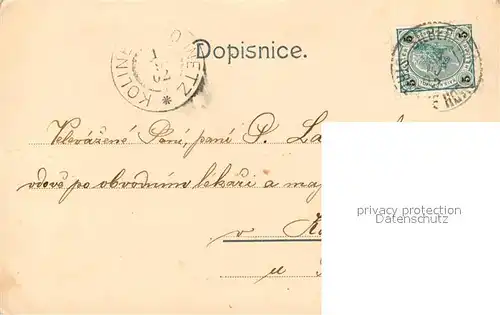 Dopisnice.
KOLIN
Velevážené Paní, paní P. La
vdově po obvodním lékaři a maj
v K
u
privacy protection
Datenschutz
5 5